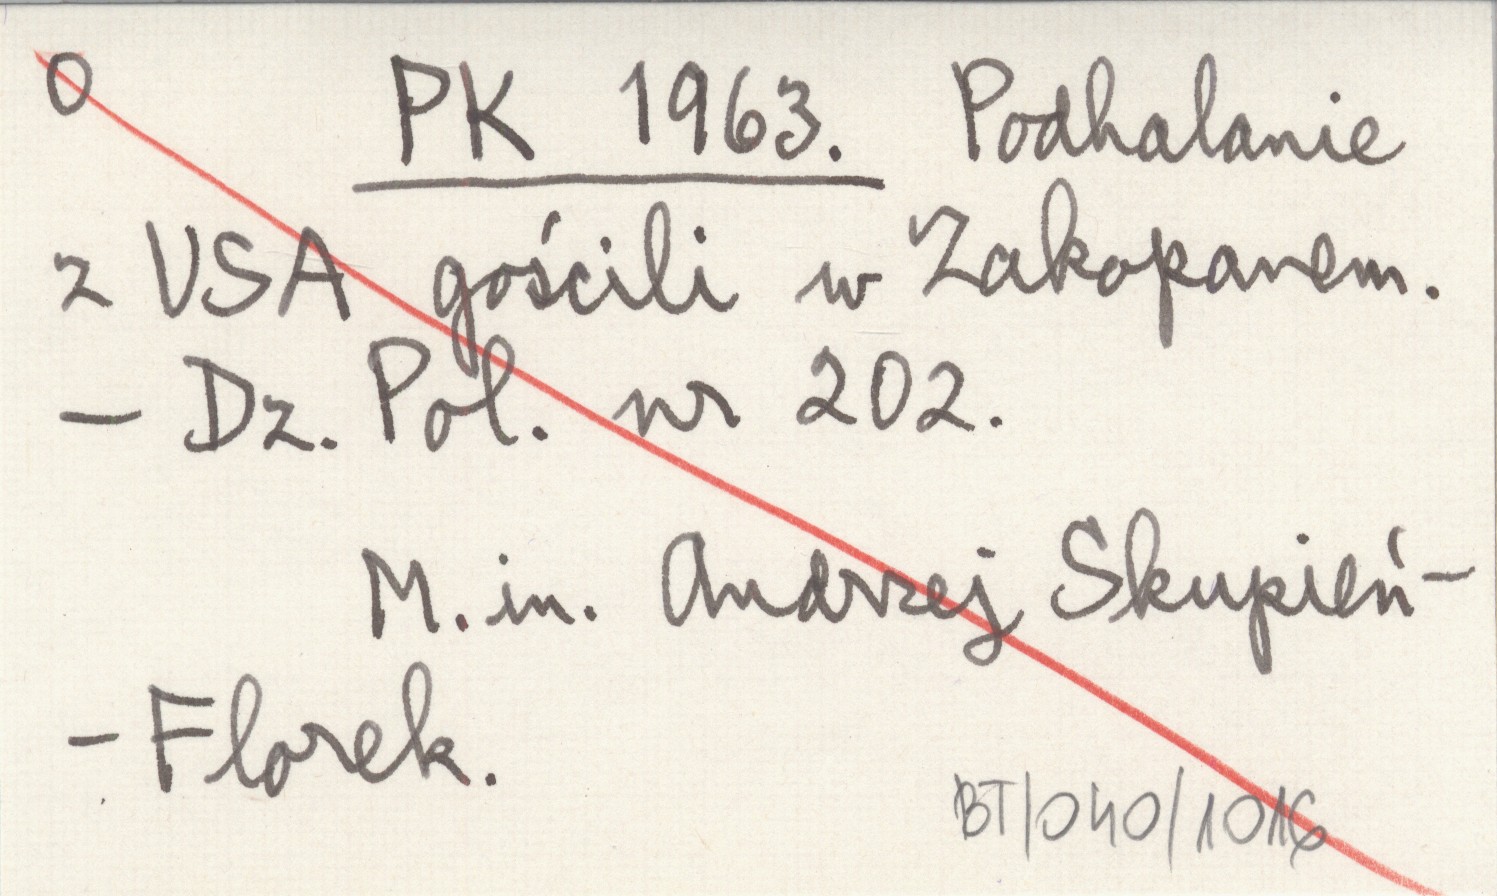 O PK 1963. Podhalanie
z USA gościli w Zakopanem.
– Dz. Pol. nr 202.
M. in. Andrzej Skupień-
- Florek.
BT/040/1016